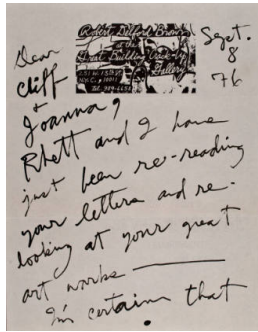 Robert Delford Brown
at the
Great Building Crack-up
Gallery
251 W. 13th St.
N.Y.C., 10011
Tel.
Sept.
8
76
Dear
Cliff
+
Joanna,
Rhett and I have
just been re-reading
your letters and re-
looking at your great
art works —
I'm certain that